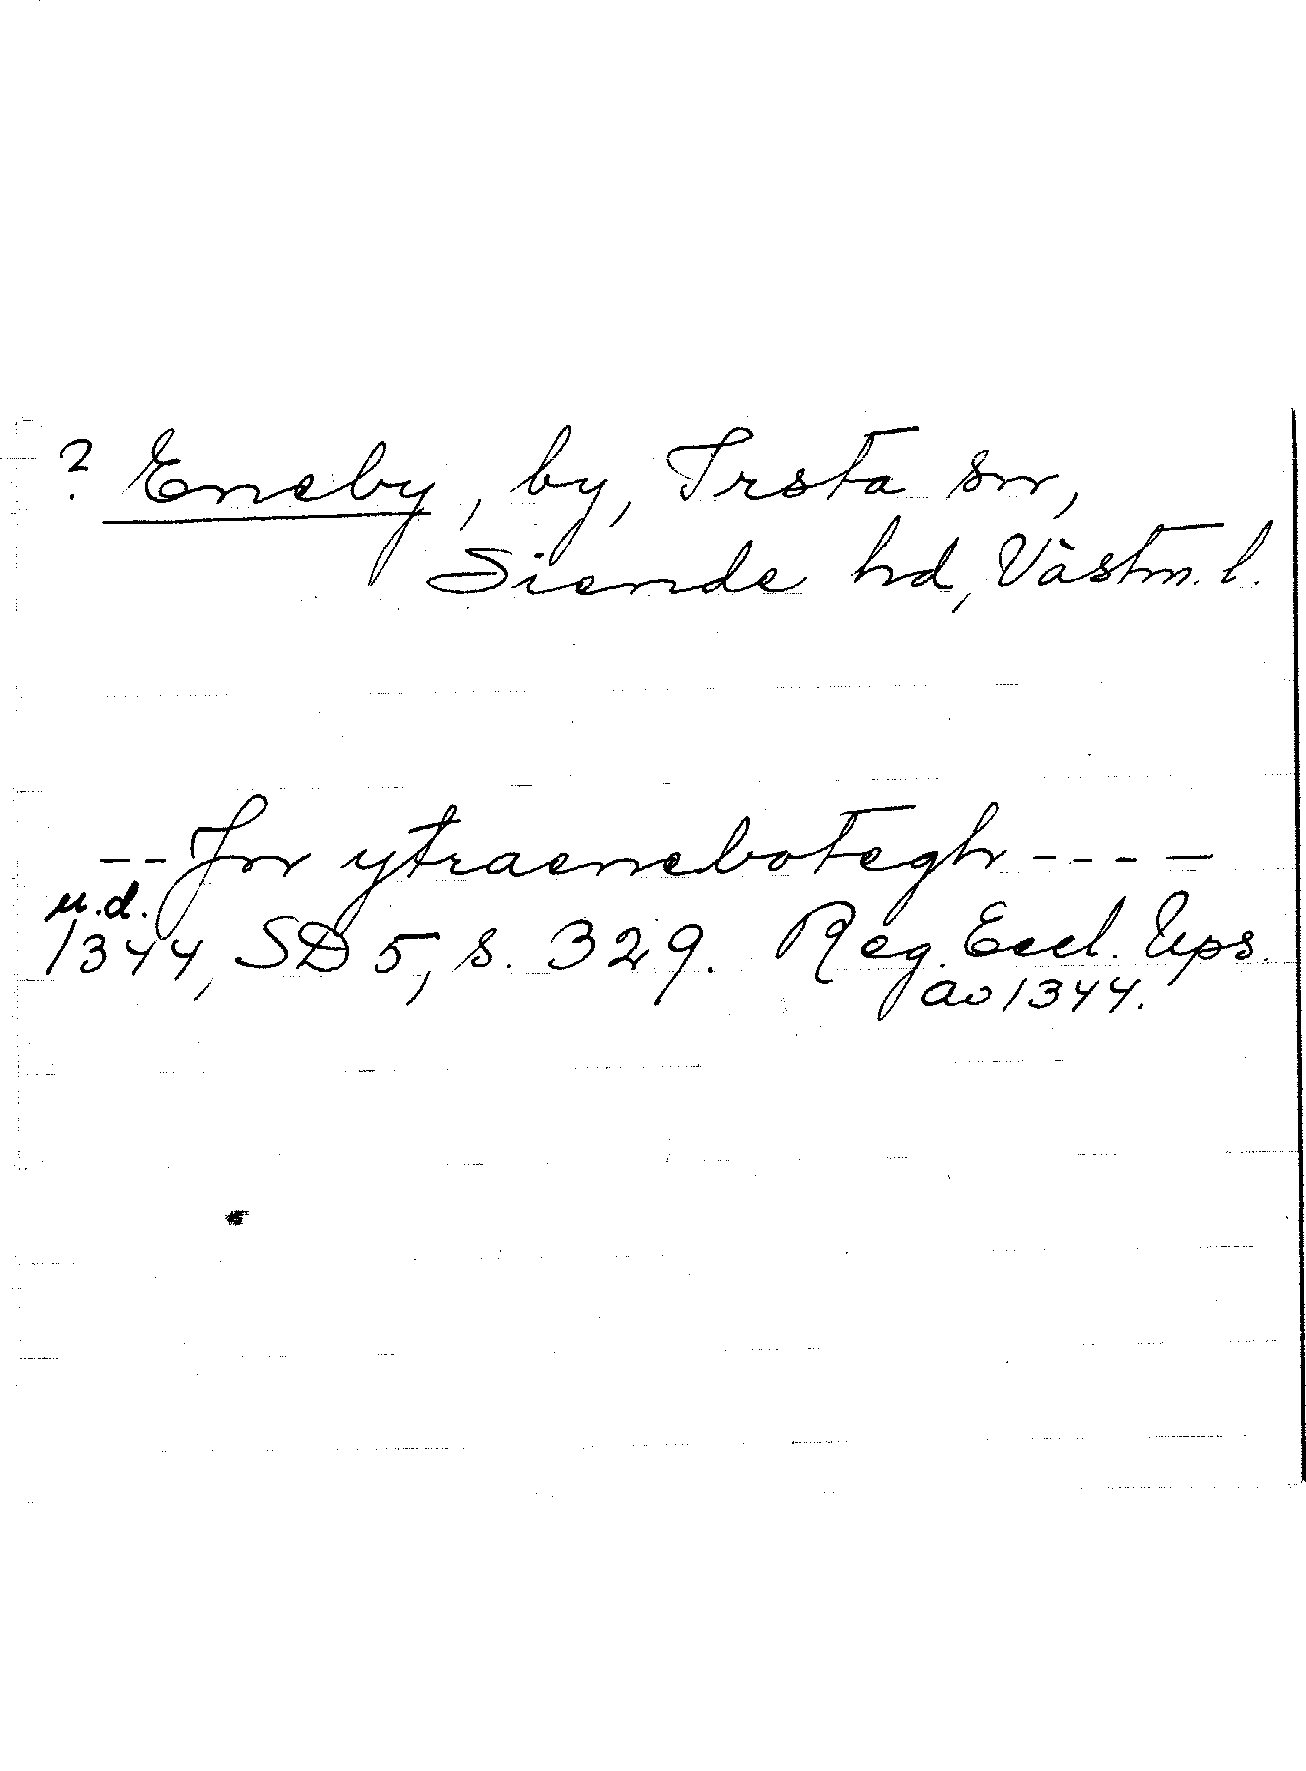 ? Eneby, by, Irsta sn,
Siende hd, Västm. l.
-- Jn ytraenebotegh ----
u.d.
1344, SD 5, s. 329. Reg. Eccl. Ups.
ao 1344.